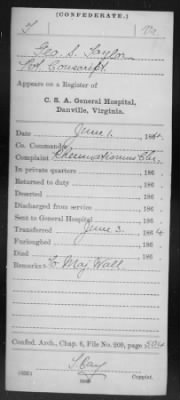 (CONFEDERATE.)
T Va.
Geo. S. Taylor
Pvt Conscript.
Appears on a Register of
C. S. A. General Hospital,
Danville, Virginia.
Date June 1, 1864.
Co. Commander
Complaint Rheumatismus Chr.
In private quarters , 186 .
Returned to duty , 186 .
Deserted , 186 .
Discharged from service , 186 .
Sent to General Hospital , 186 .
Transferred June 3. , 1864
Furloughed , 186 .
Died , 186 .
Remarks: to Maj Wall
Confed. Arch., Chap. 6, File No. 209, page 504
Copyist.